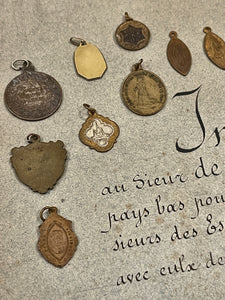 In
au Sieur de
pays bas pour
sieurs des Es
avec eulx de